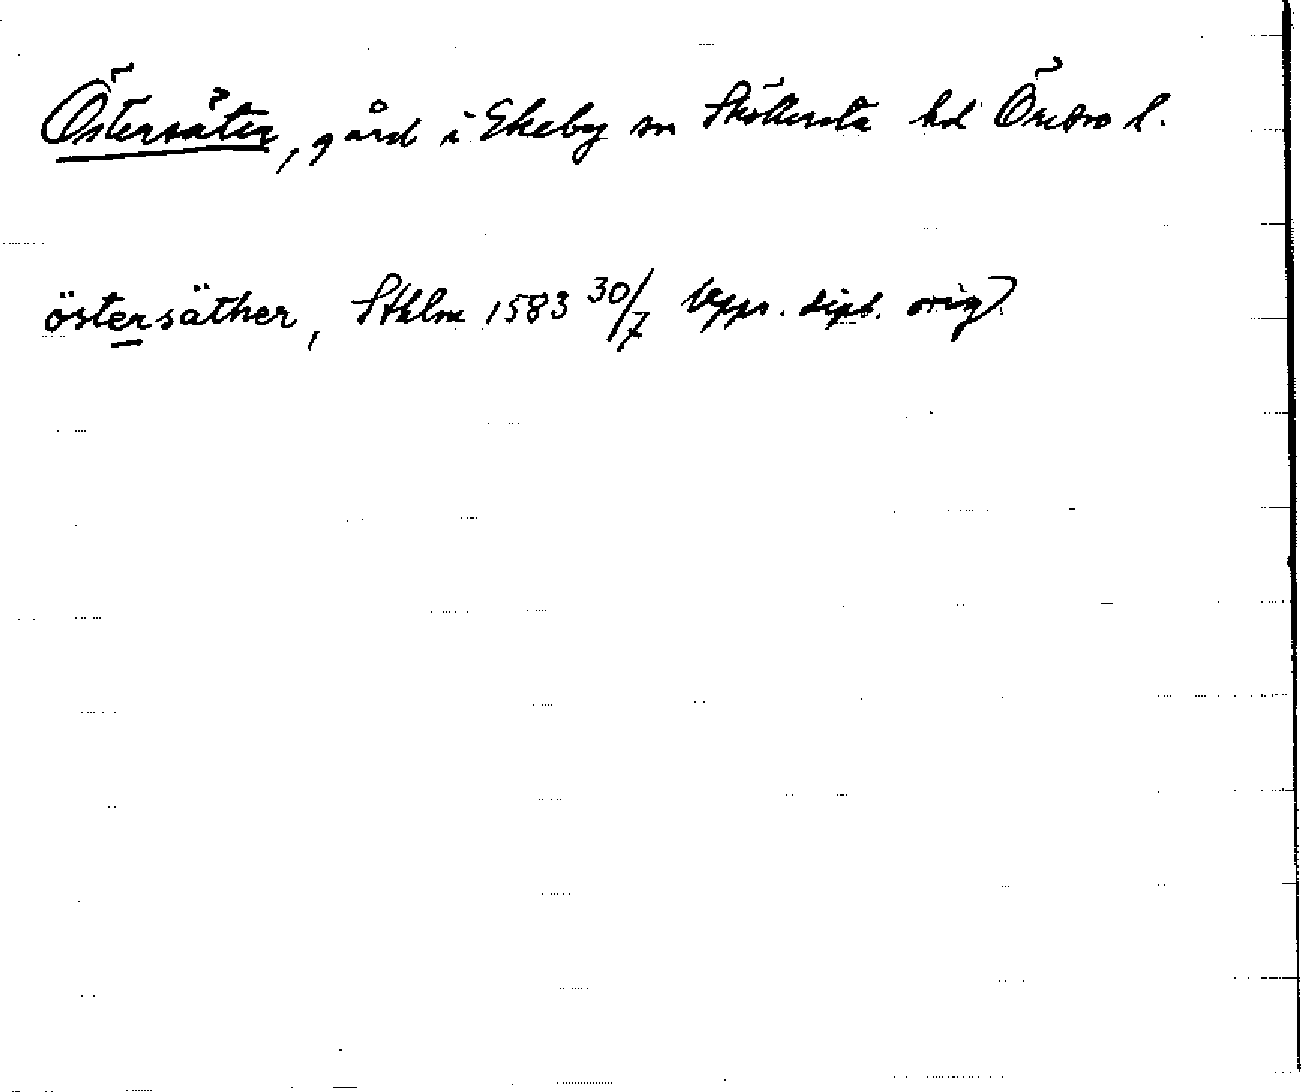 Östersäter, gård i Ekeby sn Sköllersta hd Örebro l.
östersäther, Sthlm 1583 30/7 Uppr. dipl. orig.